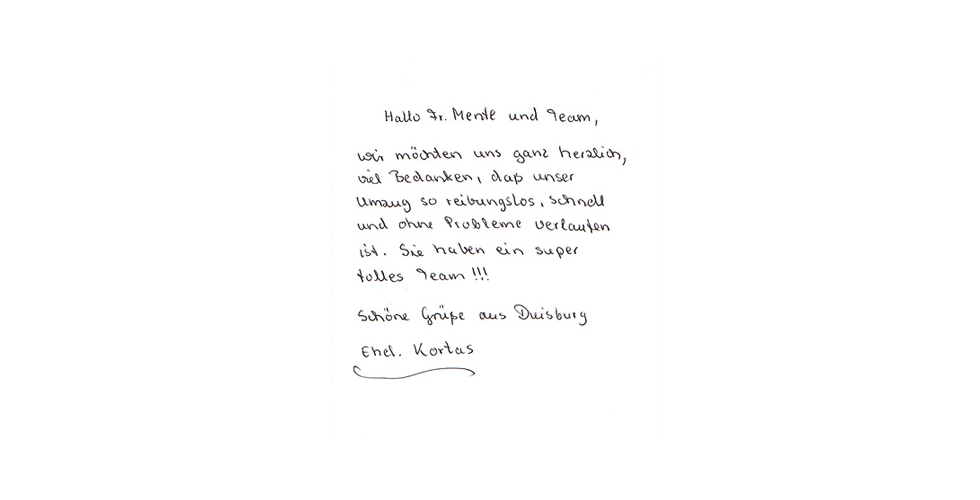 Hallo Fr. Mente und Team,
wir möchten uns ganz herzlich,
viel Bedanken, daß unser
Umzug so reibungslos, schnell
und ohne Probleme verlaufen
ist. Sie haben ein super
tolles Team!!!
Schöne Grüße aus Duisburg
Ehel. Kortas